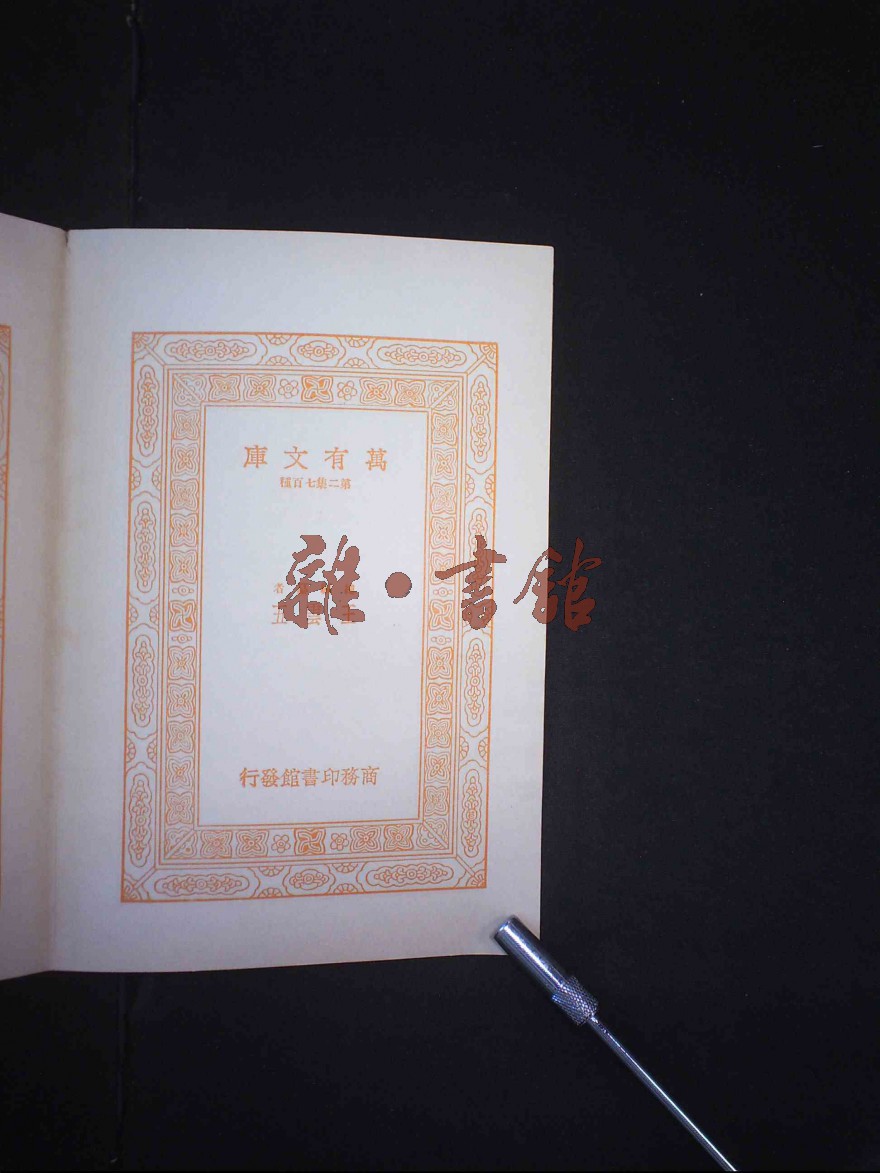 萬有文庫
第二集七百種
者
王雲五
商務印書館發行
雜·書館